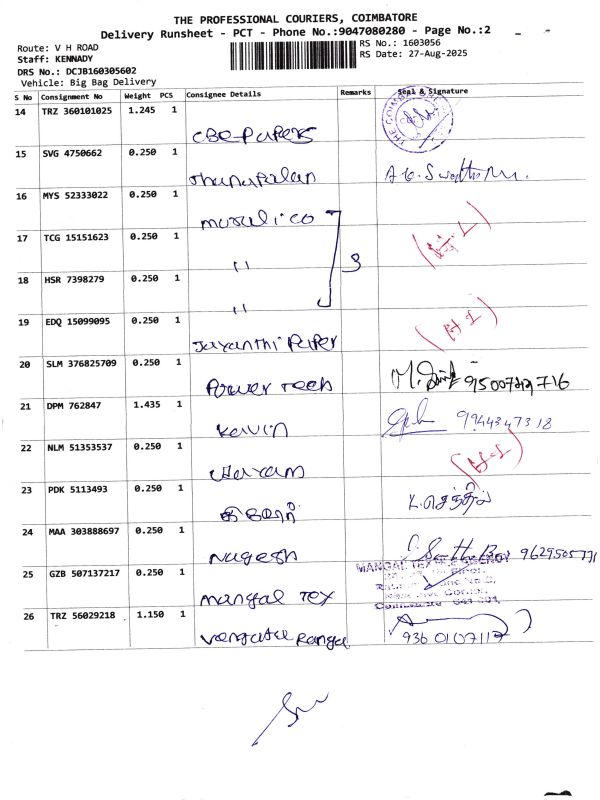 THE PROFESSIONAL COURIERS, COIMBATORE
Delivery Runsheet - PCT - Phone No.:9047080280 - Page No.:2
Route: V H ROAD
RS No.: 1603056
Staff: KENNADY
RS Date: 27-Aug-2025
DRS No.: DCJB160305602
Vehicle: Big Bag Delivery
S No Consignment No Weight PCS Consignee Details Remarks Seal & Signature
14 TRZ 360101025 1.245 1
CBE-Papers
15 SVG 4750662 0.250 1
Thanapalan
16 MYS 52333022 0.250 1
murali co
17 TCG 15151623 0.250 1
"
3
18 HSR 7398279 0.250 1
"
19 EDQ 15099095 0.250 1
Jayanthi Paper
20 SLM 376825709 0.250 1
Power Tech
21 DPM 762847 1.435 1
Kavin 9944347318
22 NLM 51353537 0.250 1
23 PDK 5113493 0.250 1
24 MAA 303888697 0.250 1
Nagesh
25 GZB 507137217 0.250 1
MANGAL TEX
mangal Tex
26 TRZ 56029218 1.150 1
9360107117